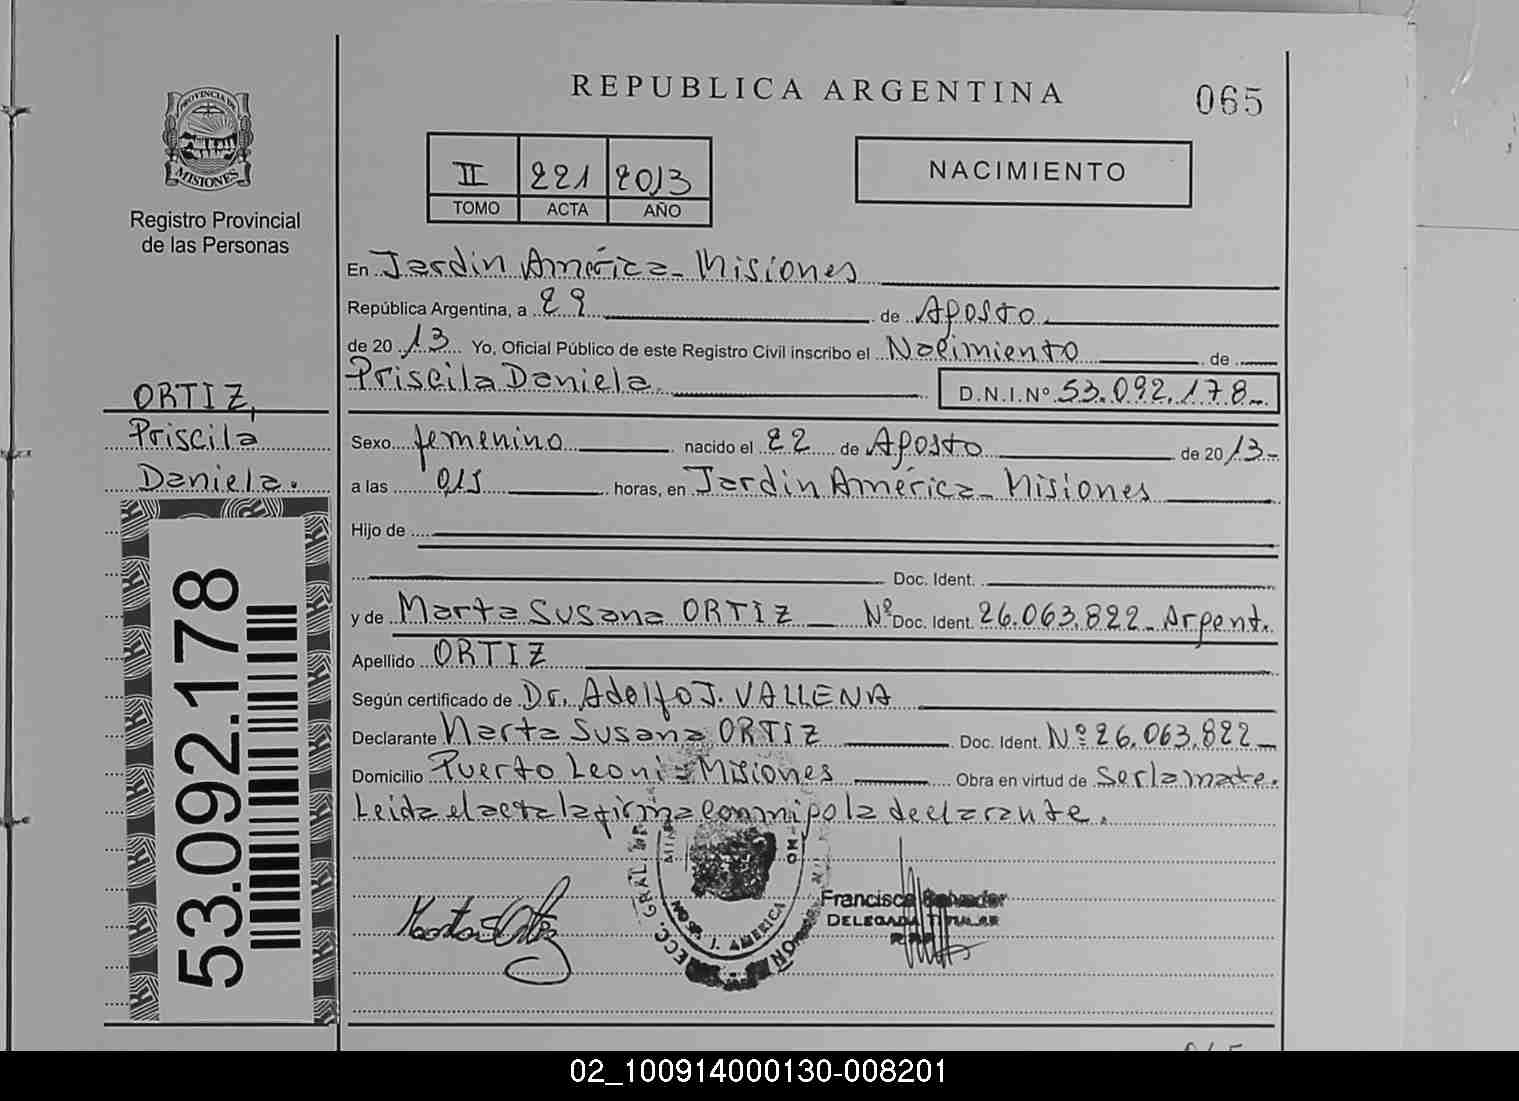 REPUBLICA ARGENTINA
065
PROVINCIA DE
MISIONES
Registro Provincial
de las Personas
II 221 2013
TOMO ACTA AÑO
NACIMIENTO
En Jardin América - Misiones
República Argentina, a 29 de Agosto
de 20 13 Yo, Oficial Público de este Registro Civil inscribo el Nacimiento de
Priscila Daniela. D.N.I.Nº 53.092.178-
ORTIZ,
Priscila
Daniela.
Sexo femenino nacido el 22 de Agosto de 20 13-
a las 015 horas, en Jardin América - Misiones
Hijo de
Doc. Ident.
y de Marta Susana ORTIZ Nº Doc. Ident. 26.063.822- Argent.
Apellido ORTIZ
Según certificado de Dr. Adolfo J. VALLENA
Declarante Marta Susana ORTIZ Doc. Ident. Nº 26.063.822-
Domicilio Puerto Leoni - Misiones Obra en virtud de ser la madre.
Leida el acta la firma conmigo la declarante.
53.092.178
GRAL.
J. AMERICA
Francisca Salvador
DELEGADA TITULAR
02_100914000130-008201